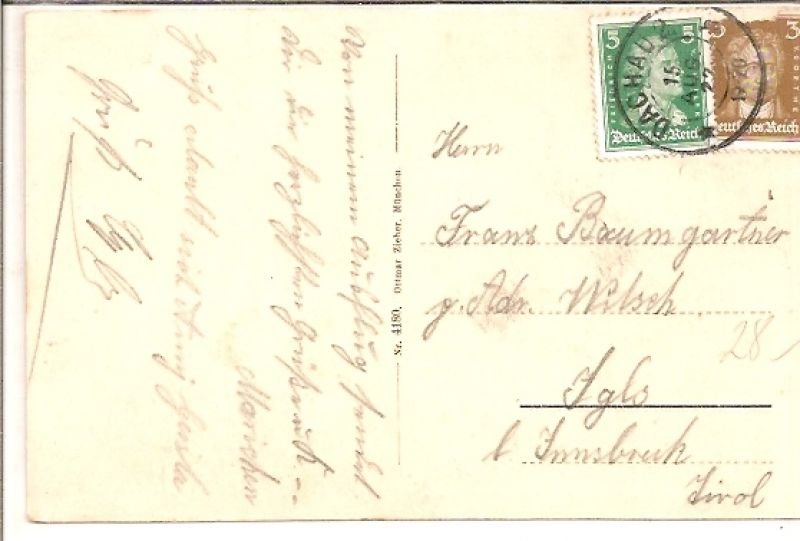 Von meinem Ausflug sendet
dir die herzlichsten Grüße
Mariechen
Gruß
Gruß
Nr. 4180. Ottmar Zieher, München
5 5
FRIEDRICH
Deutsches Reich
3
GOETHE
Deutsches Reich
DACHAU
15 AUG 27
Herrn
Franz Baumgartner
p. Adr. Wilsch
Igls
b Innsbruck
Tirol
28